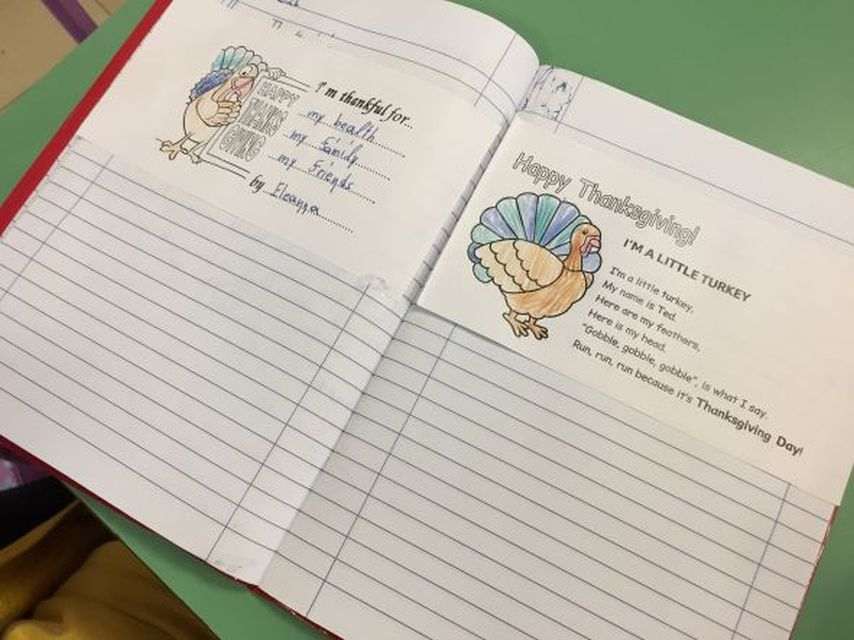 HAPPY
THANKS
GIVING
I'm thankful for...
my health
my family
my friends
by Eleanna
Happy Thanksgiving!
I'M A LITTLE TURKEY
I'm a little turkey.
My name is Ted.
Here are my feathers,
Here is my head.
"Gobble, gobble, gobble", is what I say.
Run, run, run because it's Thanksgiving Day!